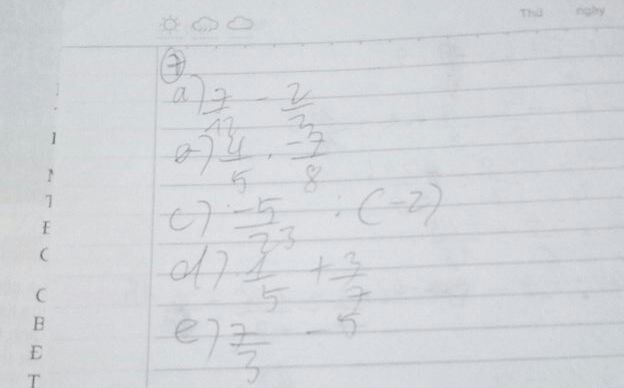 Thứ ngày
7
a) 7/12 - 2/3
b) 4/5 . -7/8
c) -5/23 : (-2)
d) 1/5 + 3/7
e) 7/3 - 5
I
N
T
E
C
C
B
E
T